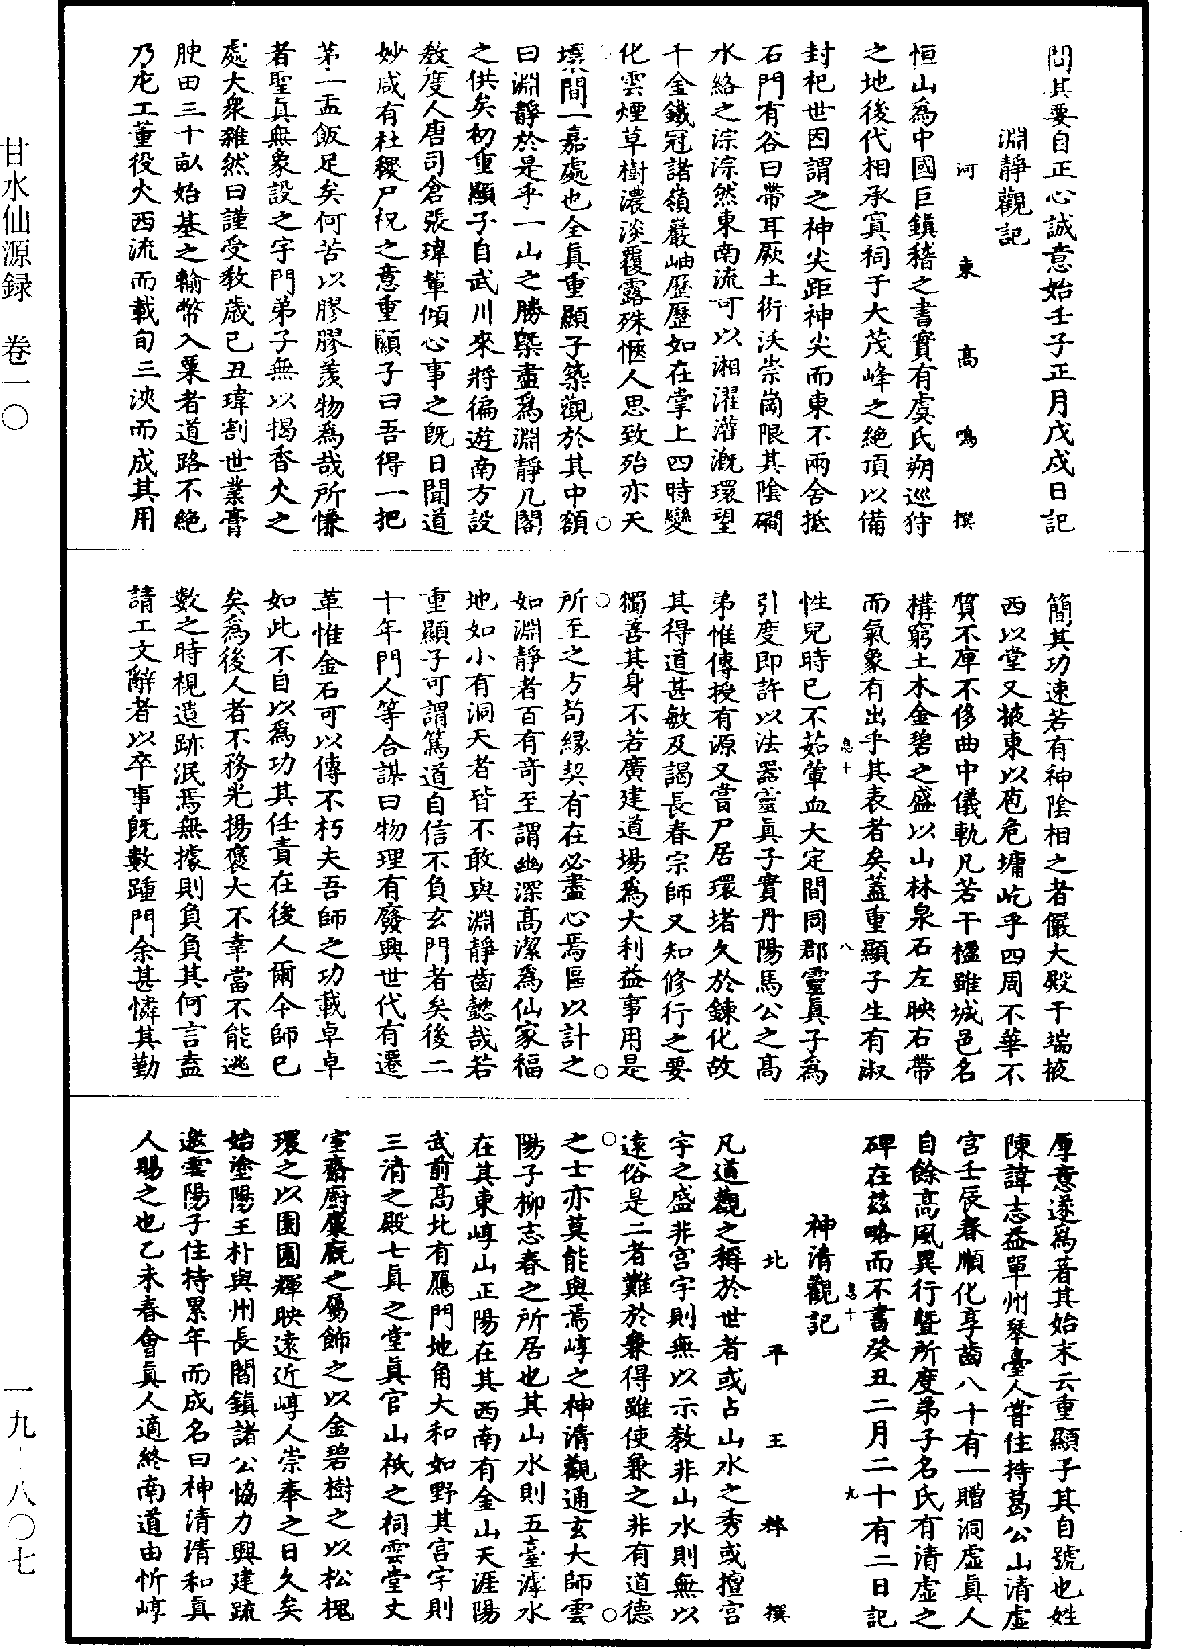 甘水仙源録　卷一〇
一九-八〇七
問其要自正心誠意始壬子正月戊戌日記
淵靜觀記
河東高鳴撰
恒山爲中國巨鎮稽之書實有虞氏朔巡狩
之地後代相承寘祠于大茂峰之絶頂以備
封祀世因謂之神尖距神尖而東不兩舍抵
石門有谷曰帶耳厥土衍沃崇崗限其陰磵
水絡之淙淙然東南流可以湘濯灌漑環望
千金鐵冠諸嶺巖岫歷歷如在掌上四時變
化雲煙草樹濃淡覆露殊愜人思致殆亦天
壤間一嘉處也全真重顯子築觀於其中額
曰淵靜於是乎一山之勝槩盡爲淵靜几閣
之供矣初重顯子自武川來將徧遊南方設
教度人唐司倉張瑋輩傾心事之旣日聞道
妙咸有杜稷尸祝之意重顯子曰吾得一把
茅一盂飯足矣何苦以膠膠羨物爲哉所慊
者聖真無象設之宇門弟子無以揭香火之
處大衆雜然曰謹受教歲己丑瑋割世業膏
腴田三十畝始基之輸幣入粟者道路不絶
乃庀工董役火西流而載旬三浹而成其用
簡其功速若有神陰相之者儼大殿于端掖
西以堂又掖東以庖危墉屹乎四周不華不
質不庳不侈曲中儀軌凡若干楹雖城邑名
構窮土木金碧之盛以山林泉石左映右帶
而氣象有出乎其表者矣蓋重顯子生有淑
性兒時已不茹葷血大定間同郡靈真子爲
引度即許以法器靈真子實丹陽馬公之高
弟惟傳授有源又嘗尸居環堵久於鍊化故
其得道甚敏及謁長春宗師又知修行之要
獨善其身不若廣建道場爲大利益事用是
所至之方苟縁契有在必盡心焉區以計之
如淵靜者百有奇至謂幽深高潔爲仙家福
地如小有洞天者皆不敢與淵靜齒懿哉若
重顯子可謂篤道自信不負玄門者矣後二
十年門人等合謀曰物理有廢興世代有遷
革惟金石可以傳不朽夫吾師之功載卓卓
如此不自以爲功其任責在後人爾今師已
矣爲後人者不務光揚褒大不幸當不能逃
數之時視遺跡泯焉無據則負負其何言盍
請工文辭者以卒事旣數踵門余甚憐其勤
厚意遂爲著其始末云重顯子其自號也姓
陳諱志益單州琴臺人嘗住持葛公山清虛
宫壬辰春順化享齒八十有一贈洞虛真人
自餘高風異行曁所度弟子名氏有清虛之
碑在茲略而不書癸丑二月二十有二日記
神清觀記
北平王粹撰
凡道觀之稱於世者或占山水之秀或擅宫
宇之盛非宫宇則無以示教非山水則無以
遠俗是二者難於兼得雖使兼之非有道德
之士亦莫能與焉崞之神清觀通玄大師雲
陽子柳志春之所居也其山水則五臺滹水
在其東崞山正陽在其西南有金山天涯陽
武前高北有鴈門地角大和如野其宫宇則
三清之殿七真之堂真官山祇之祠雲堂丈
室齋厨廩廐之屬飾之以金碧樹之以松槐
環之以園圃輝映遠近崞人崇奉之日久矣
始塗陽王朴與州長閻鎮諸公協力興建疏
邀雲陽子住持累年而成名曰神清清和真
人賜之也乙未春會真人適終南道由忻崞